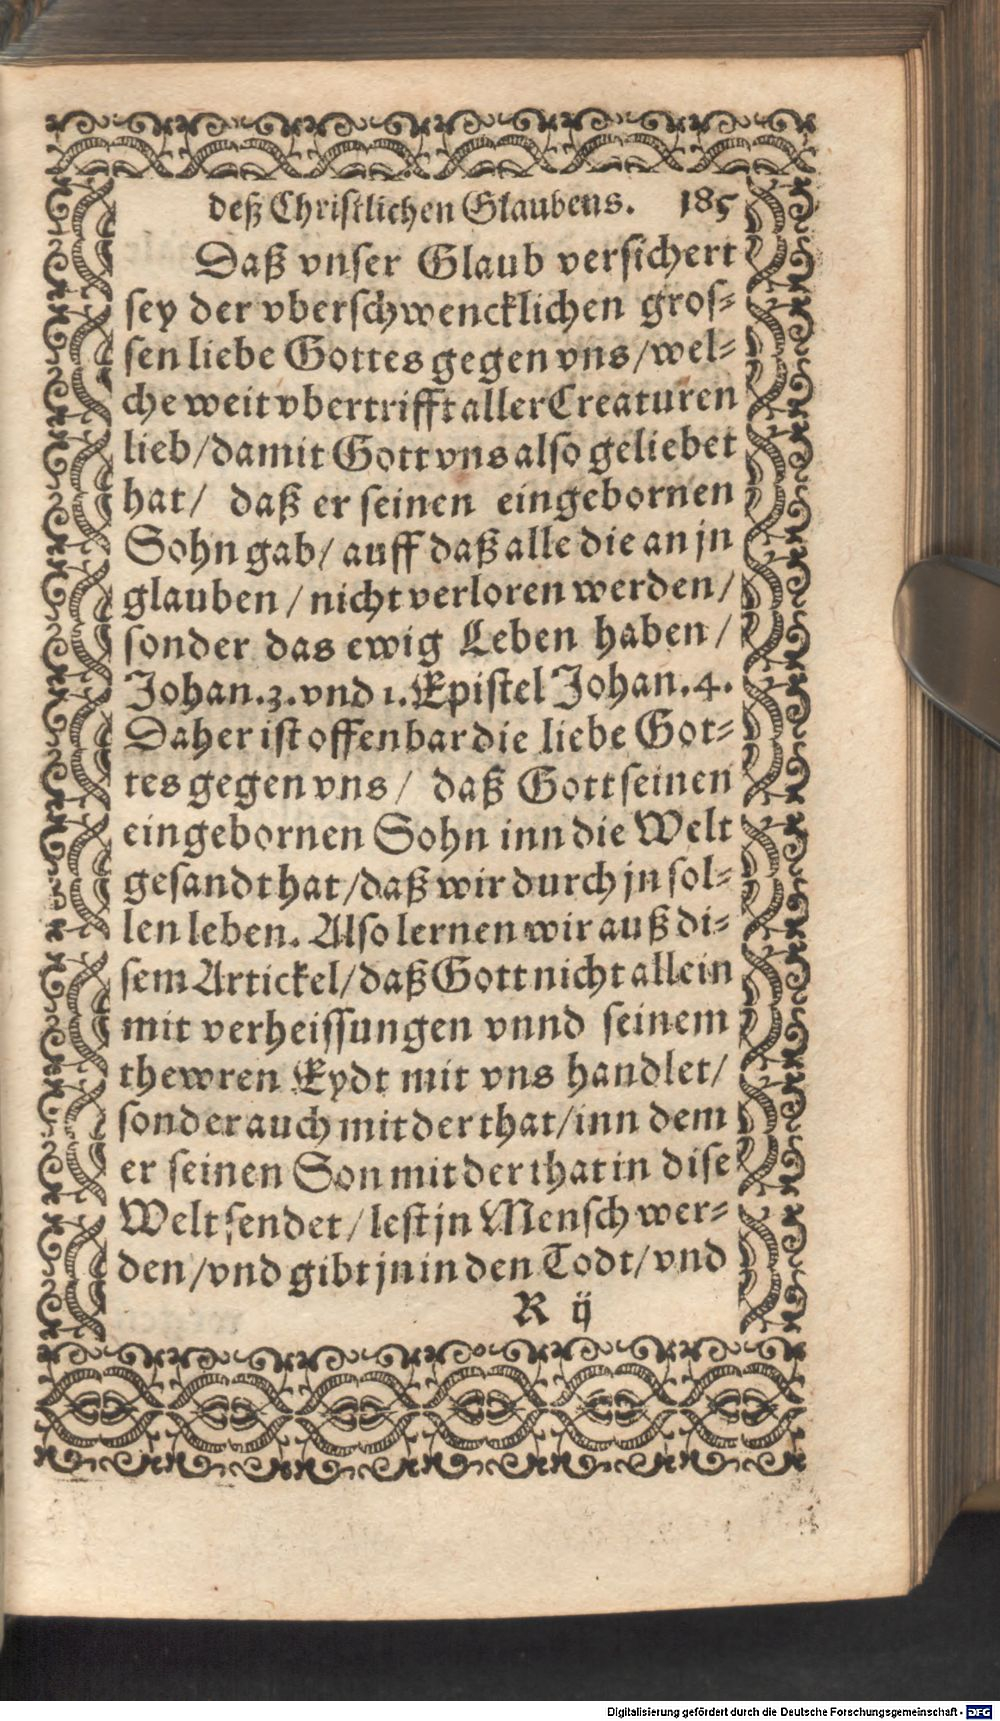 deß Christlichen Glaubens. 185
Daß vnser Glaub versichert
sey der vberschwencklichen gros-
sen liebe Gottes gegen vns/wel-
che weit vbertrifft aller Creaturen
lieb/damit Gott vns also geliebet
hat/ daß er seinen eingebornen
Sohn gab/ auff daß alle die an jn
glauben/nicht verloren werden/
sonder das ewig Leben haben/
Johan.3.vnd 1.Epistel Johan.4.
Daher ist offenbar die liebe Got-
tes gegen vns/ daß Gott seinen
eingebornen Sohn inn die Welt
gesandt hat/daß wir durch jn sol-
len leben. Also lernen wir auß di-
sem Artickel/daß Gott nicht allein
mit verheissungen vnnd seinem
thewren Eydt mit vns handlet/
sonder auch mit der that/inn dem
er seinen Son mit der that in dise
Welt sendet/lest jn Mensch wer-
den/vnd gibt jn in den Todt/vnd
R ij
Digitalisierung gefördert durch die Deutsche Forschungsgemeinschaft - DFG